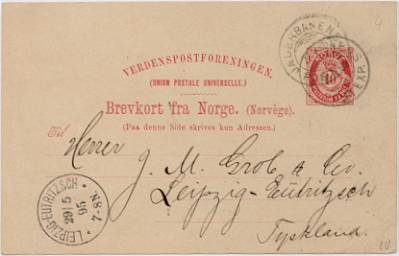 VERDENSPOSTFORENINGEN.
(UNION POSTALE UNIVERSELLE.)
Brevkort fra Norge. (Norvège).
(Paa denne Side skrives kun Adressen.)
JÆDERBANENS
EXP.
Til
Herrer J. M. Grob & Co.
Leipzig-Eutritzsch
Tyskland.
LEIPZIG-EUTRITZSCH
29/5
95
7-8N